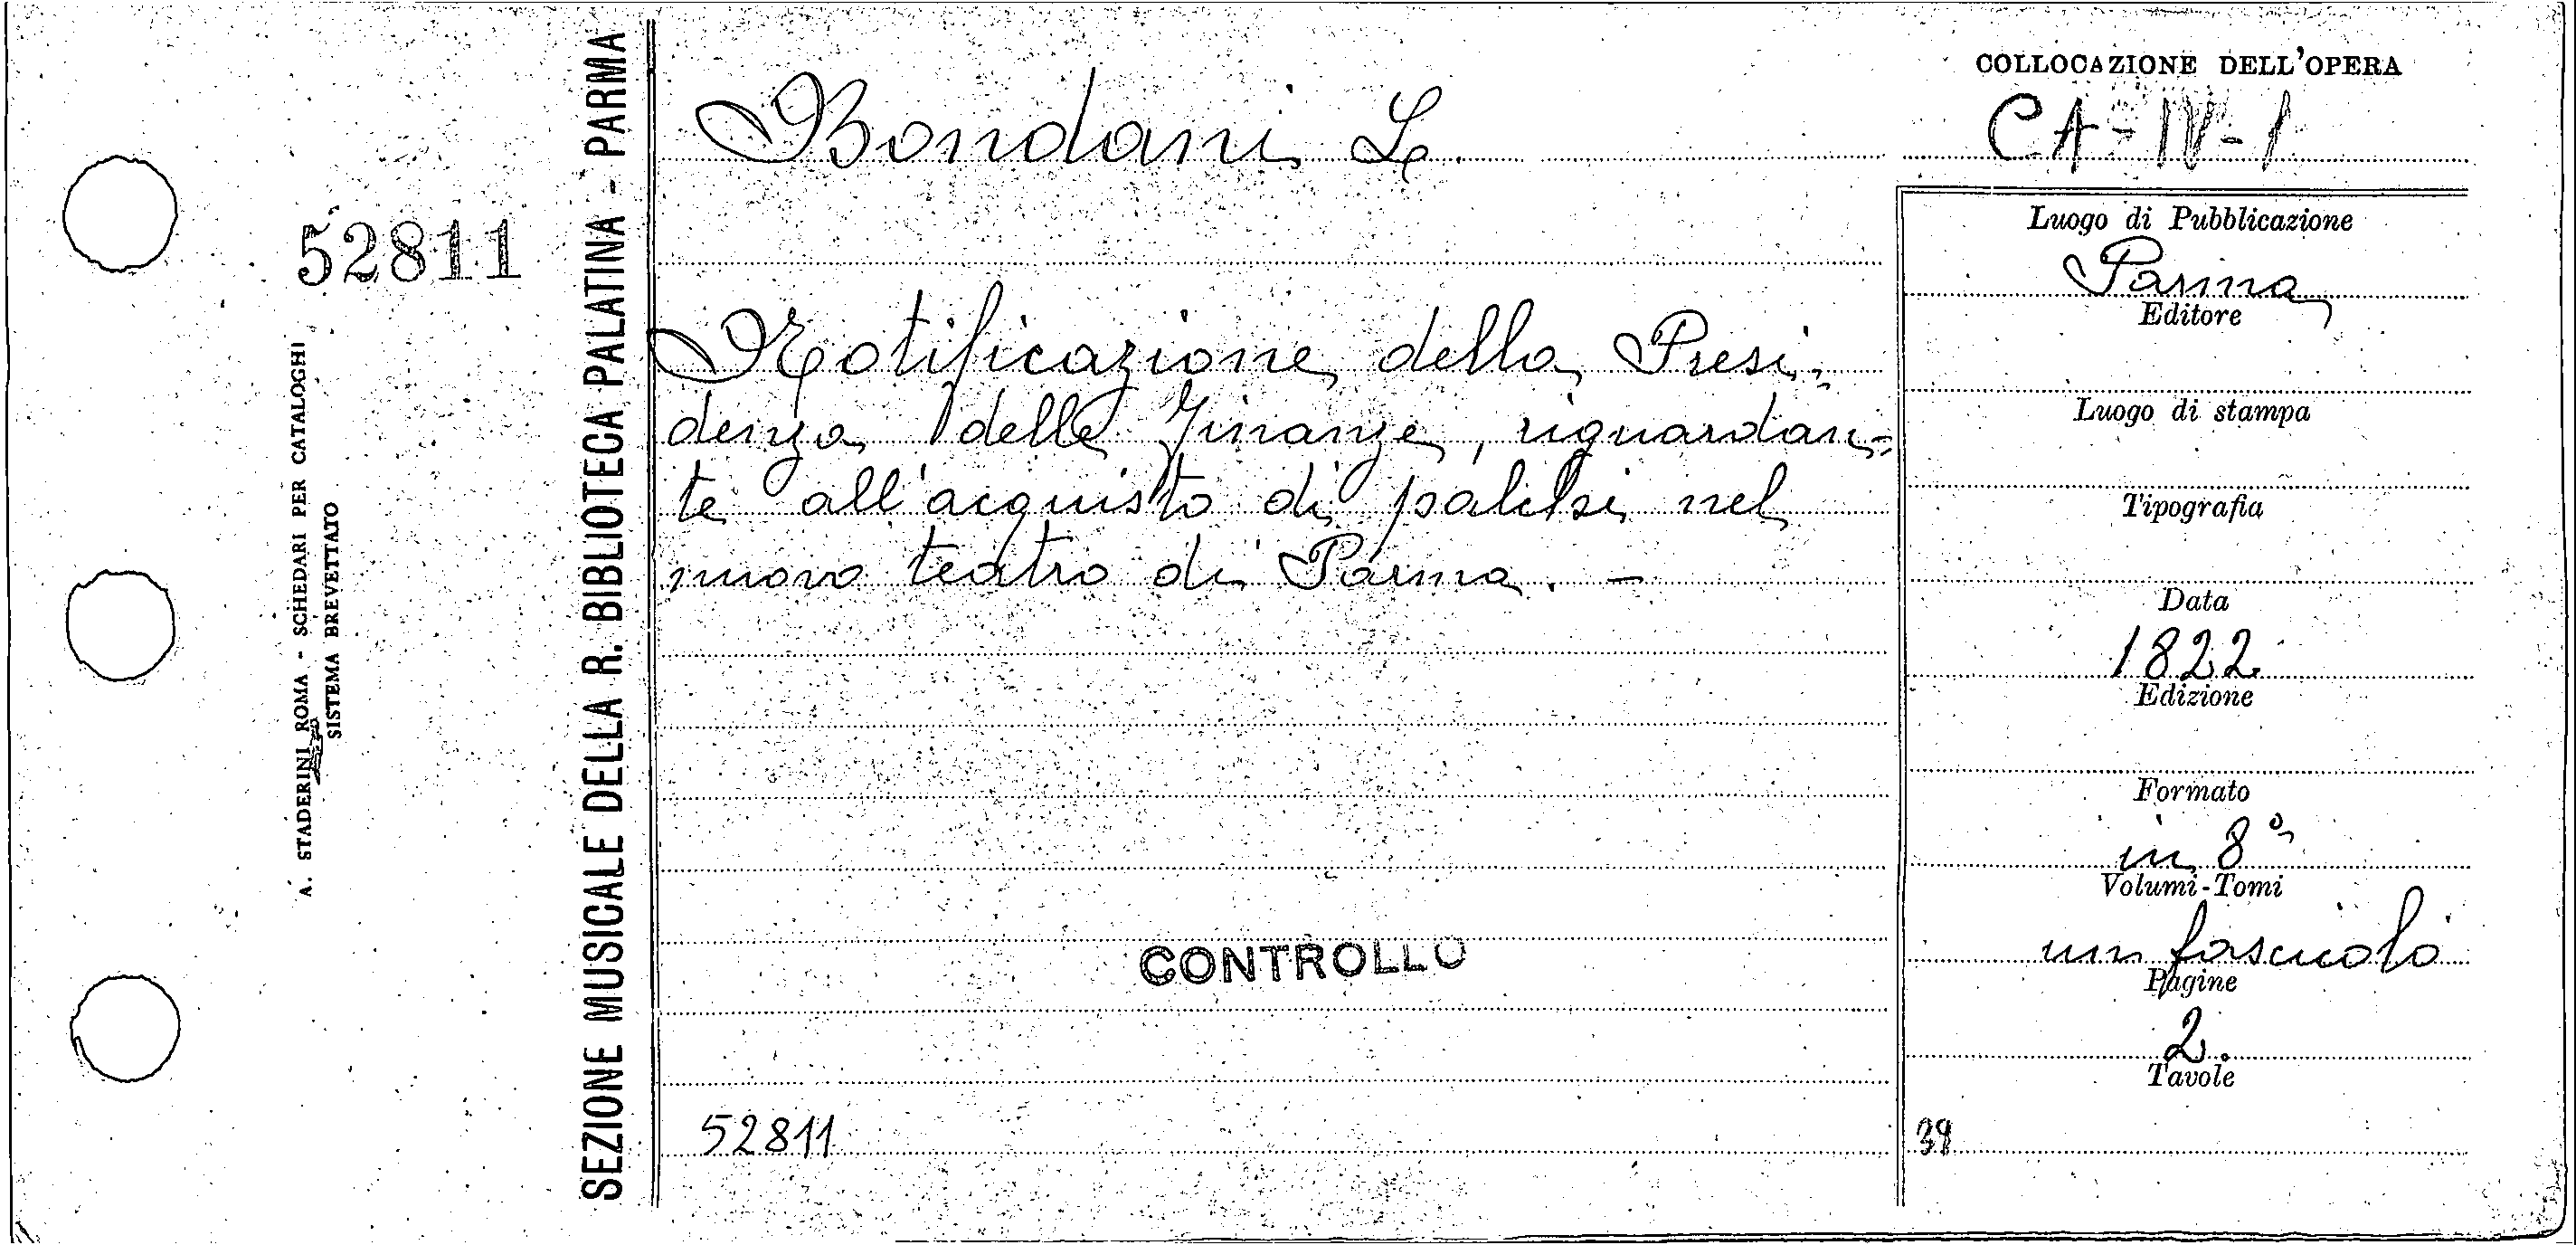 COLLOCAZIONE DELL'OPERA
CA-IV-1
Bondani L.
52811
Notificazione della Presi-
denza delle Finanze, riguardan-
te all'acquisto di palchi nel
nuovo teatro di Parma. -
CONTROLLO
52811
Luogo di Pubblicazione
Parma
Editore
Luogo di stampa
Tipografia
Data
1822
Edizione
Formato
in 8°
Volumi-Tomi
un fascicolo
Pagine
2.
Tavole
39
SEZIONE MUSICALE DELLA R. BIBLIOTECA PALATINA - PARMA
A. STADERINI ROMA - SCHEDARI PER CATALOGHI
SISTEMA BREVETTATO